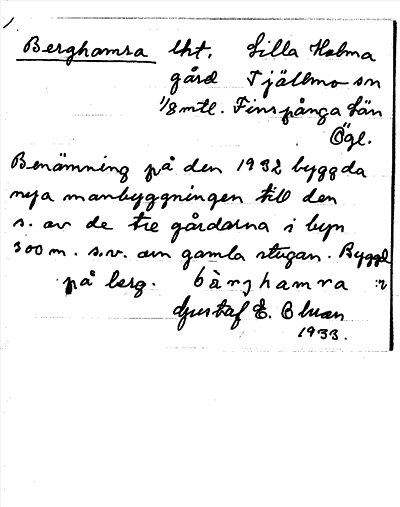 Berghamra lht. Lilla Holma
gård Tjällmo sn
1/8 mtl. Finspånga län
Ögl.
Benämning på den 1932 byggda
nya manbyggningen till den
s. av de tre gårdarna i byn
300 m. s.v. om gamla stugan. Byggd
på berg. bærjhamra
Gustaf E. Olsson
1933.